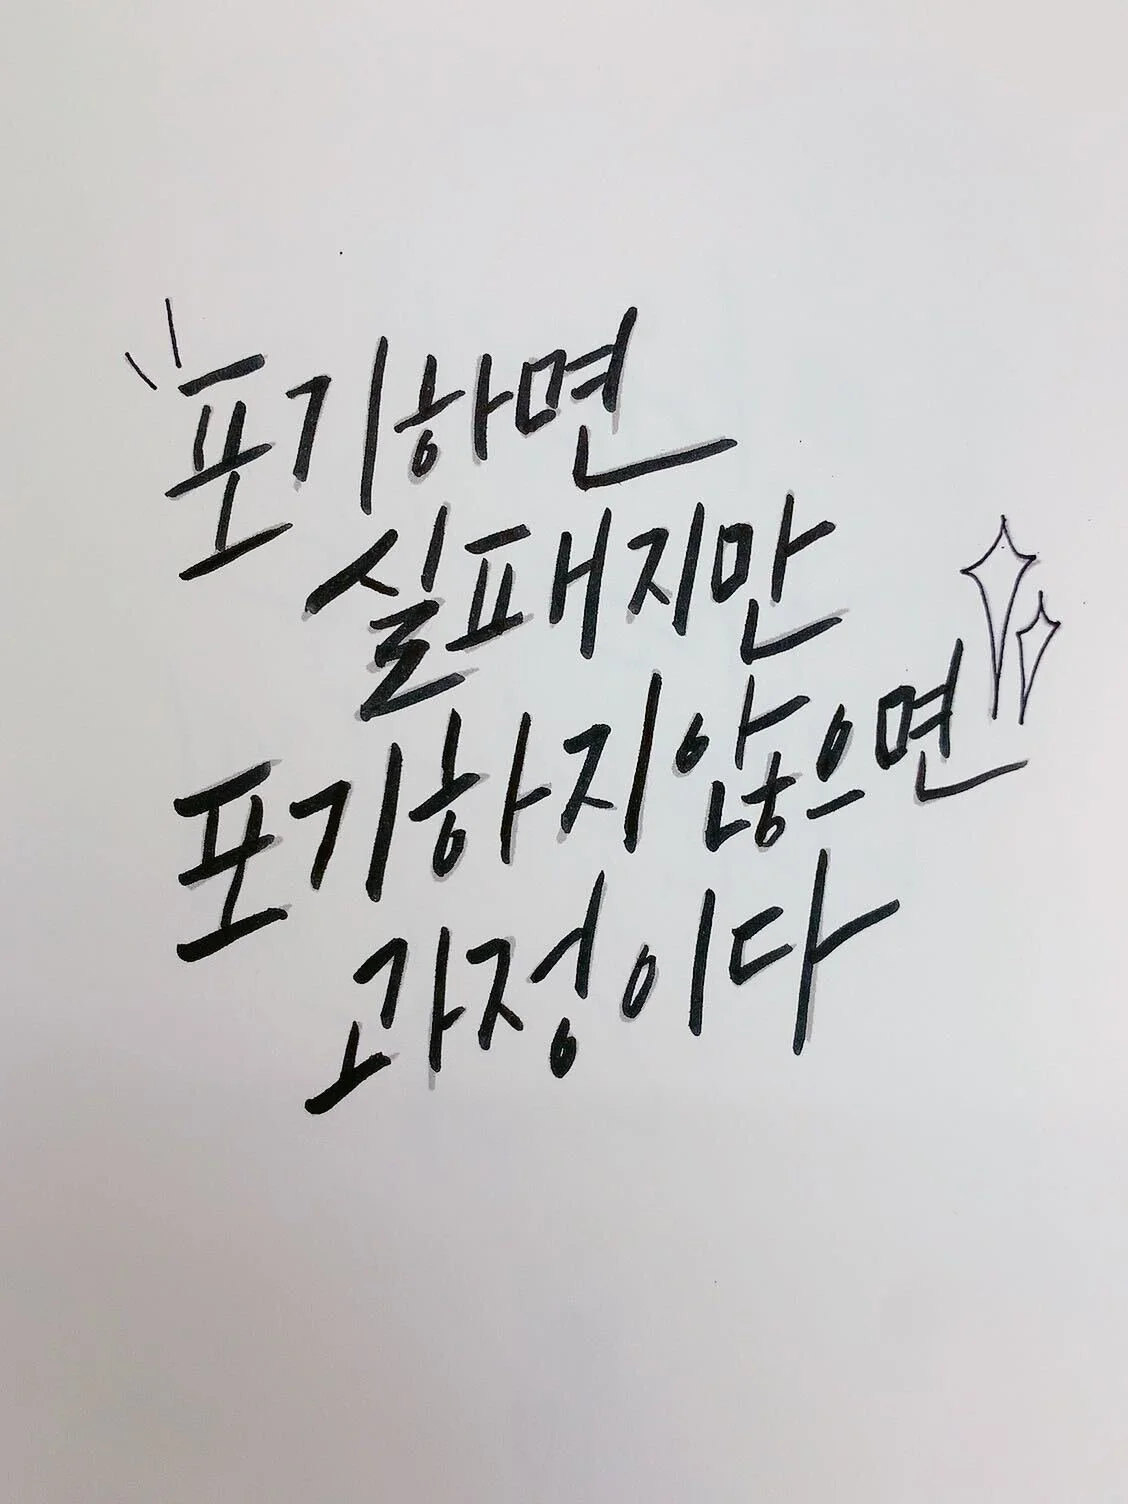 포기하면
실패지만
포기하지않으면
과정이다